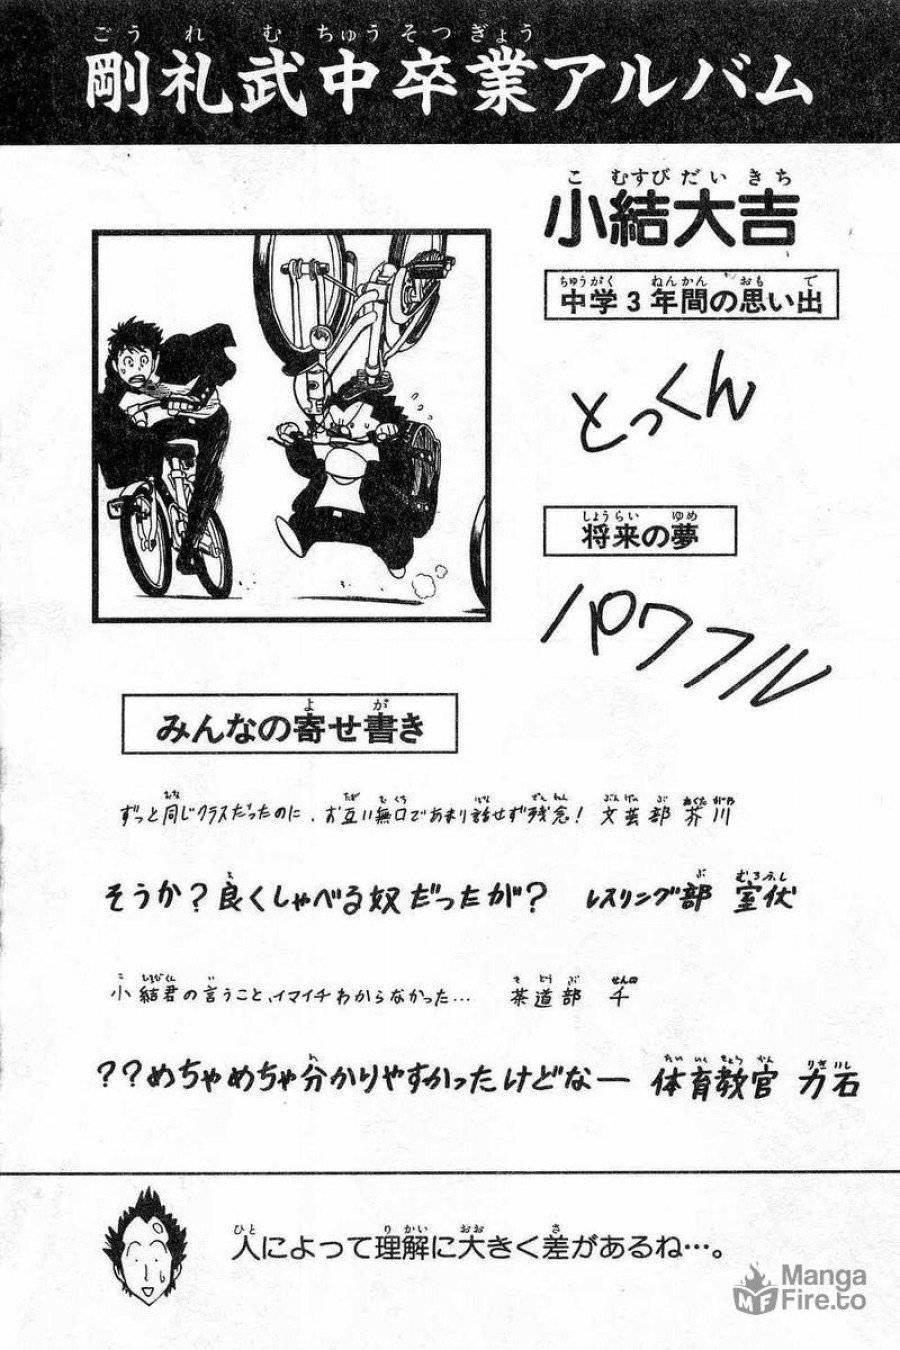 剛礼武中卒業アルバム
小結大吉
中学3年間の思い出
とっくん
将来の夢
パワフル
みんなの寄せ書き
ずっと同じクラスだったのに、お互い無口であまり話せず残念! 文芸部 芥川
そうか?良くしゃべる奴だったが? レスリング部 室伏
小結君の言うこと、イマイチわからなかった… 茶道部 千
??めちゃめちゃ分かりやすかったけどなー 体育教官 力石
人によって理解に大きく差があるね…。
MangaFire.to